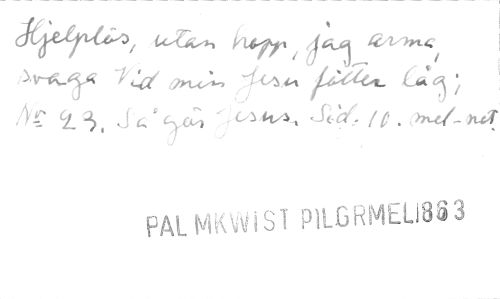 Hjelplös, utan hopp, jag arma,
svaga Vid min Jesu fötter låg;
Nr 23. Så gör Jesus. Sid. 10. mel-not.
PALMKWIST PILGRMEL1863